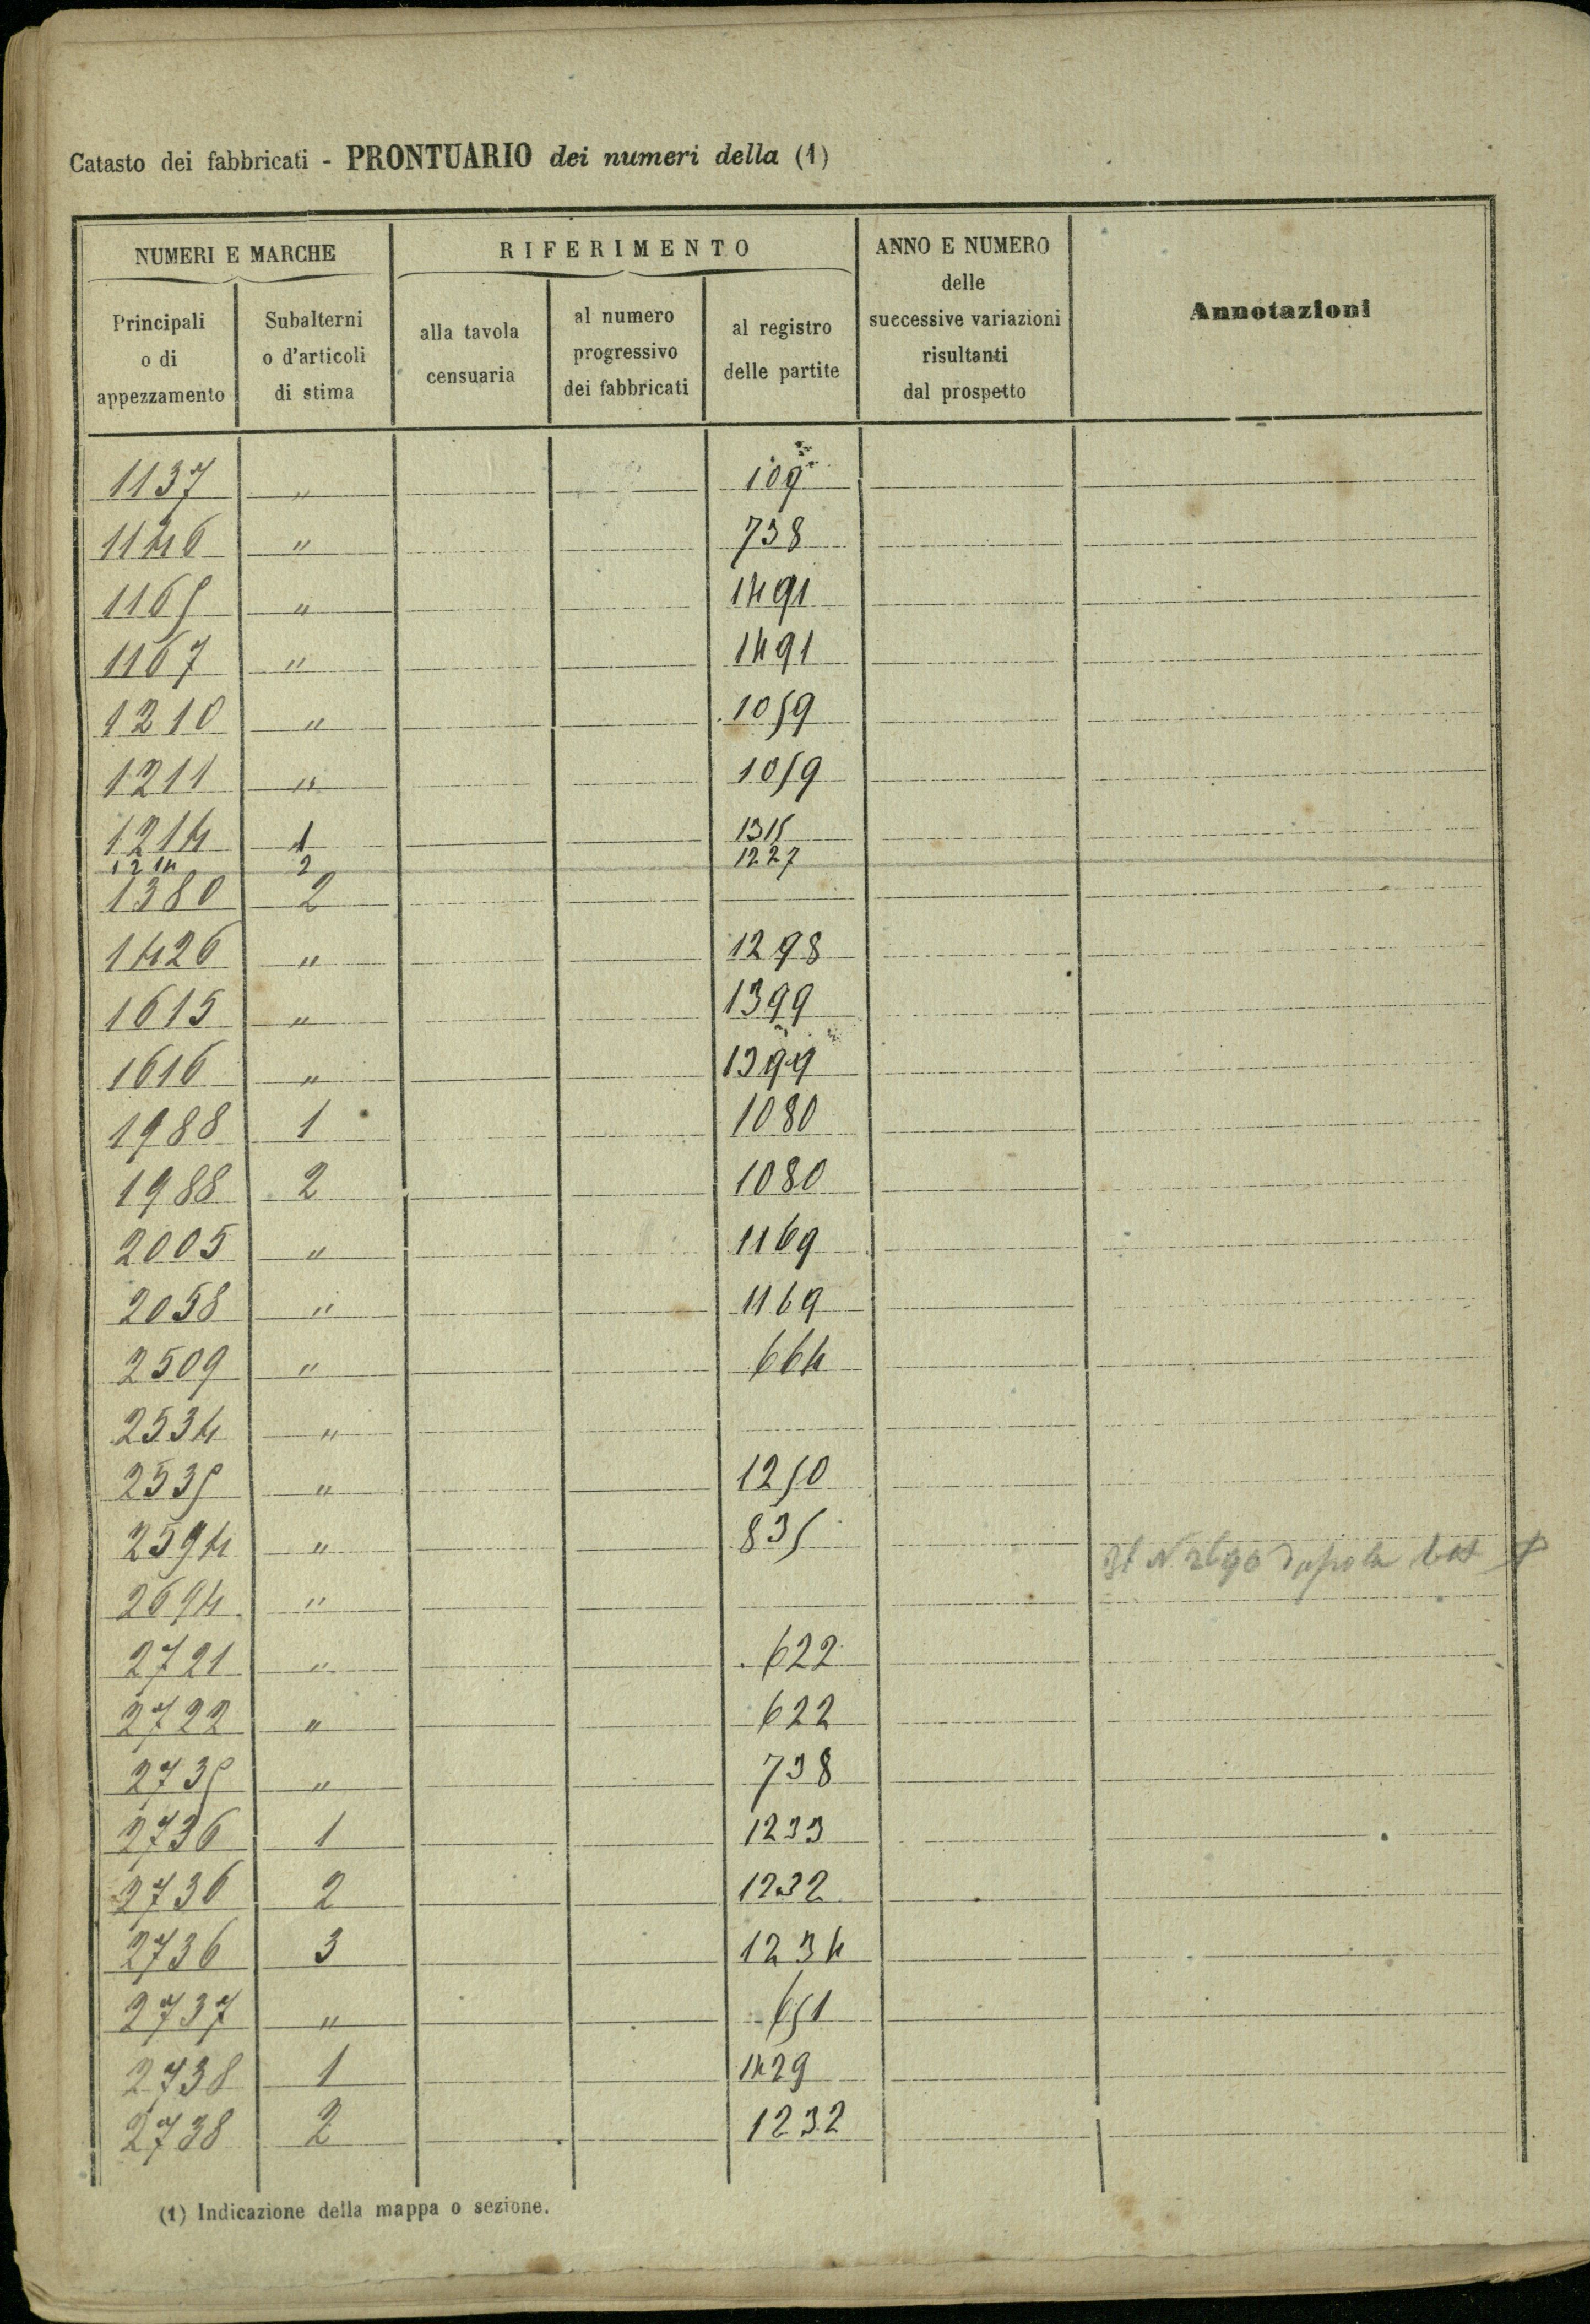 Catasto dei fabbricati - PRONTUARIO dei numeri della (1)
NUMERI E MARCHE
RIFERIMENTO
ANNO E NUMERO
delle
successive variazioni
risultanti
dal prospetto
Annotazioni
Principali
o di
appezzamento
Subalterni
o d'articoli
di stima
alla tavola
censuaria
al numero
progressivo
dei fabbricati
al registro
delle partite
1137 " 109
1146 " 738
1165 " 1491
1167 " 1491
1210 " 1059
1211 " 1059
1214 1 1315
1214 2 1227
1380 2
1426 " 1298
1615 " 1399
1616 " 1399
1988 1 1080
1988 2 1080
2005 " 1169
2058 " 1169
2509 " 664
2534 "
2535 " 1250
2594 " 835
2694 "
2721 " 622
2722 " 622
2735 " 738
2736 1 1233
2736 2 1232
2736 3 1234
2737 " 651
2738 1 1429
2738 2 1232
(1) Indicazione della mappa o sezione.